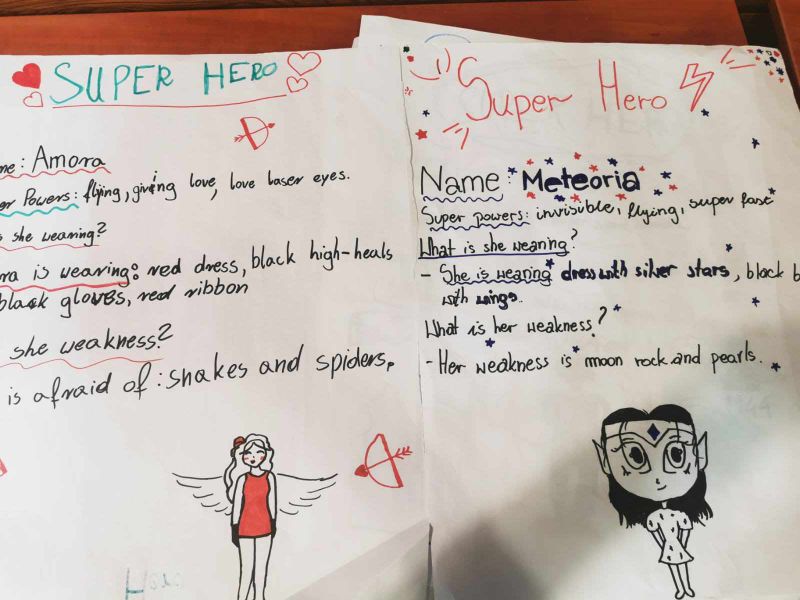 SUPER HERO
me: Amora
er Powers: flying, giving love, love laser eyes.
s she wearing?
ora is wearing: red dress, black high-heals
black gloves, red ribbon
she weakness?
is afraid of: snakes and spiders.
Super Hero
Name: Meteoria
Super powers: invisible, flying, super fast
What is she wearing?
- She is wearing dress with silver stars, black b
with wings.
What is her weakness?
- Her weakness is moon rock and pearls.